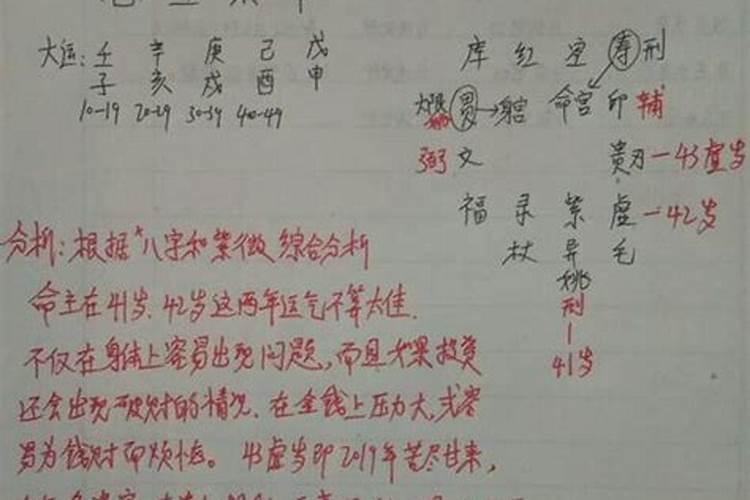 大运: 壬 辛 庚 己 戊
子 亥 戌 酉 申
10-19 20-29 30-39 40-49
库 红 空 寿 刑
大限 贯→ 命宫 印 辅
弼 文 贵 刃-43虚岁
福 录 紫 虚-42岁
杖 异 毛
姚
刑
41岁
分析: 根据"八字和紫微综合分析
命主在41岁、42岁这两年运气不算太佳.
不仅在身体上容易出现问题, 而且如果投资
还会出现破财的情况. 在金钱上压力大, 或容
易为钱财而烦恼。 43虚岁即2019年苦尽甘来,